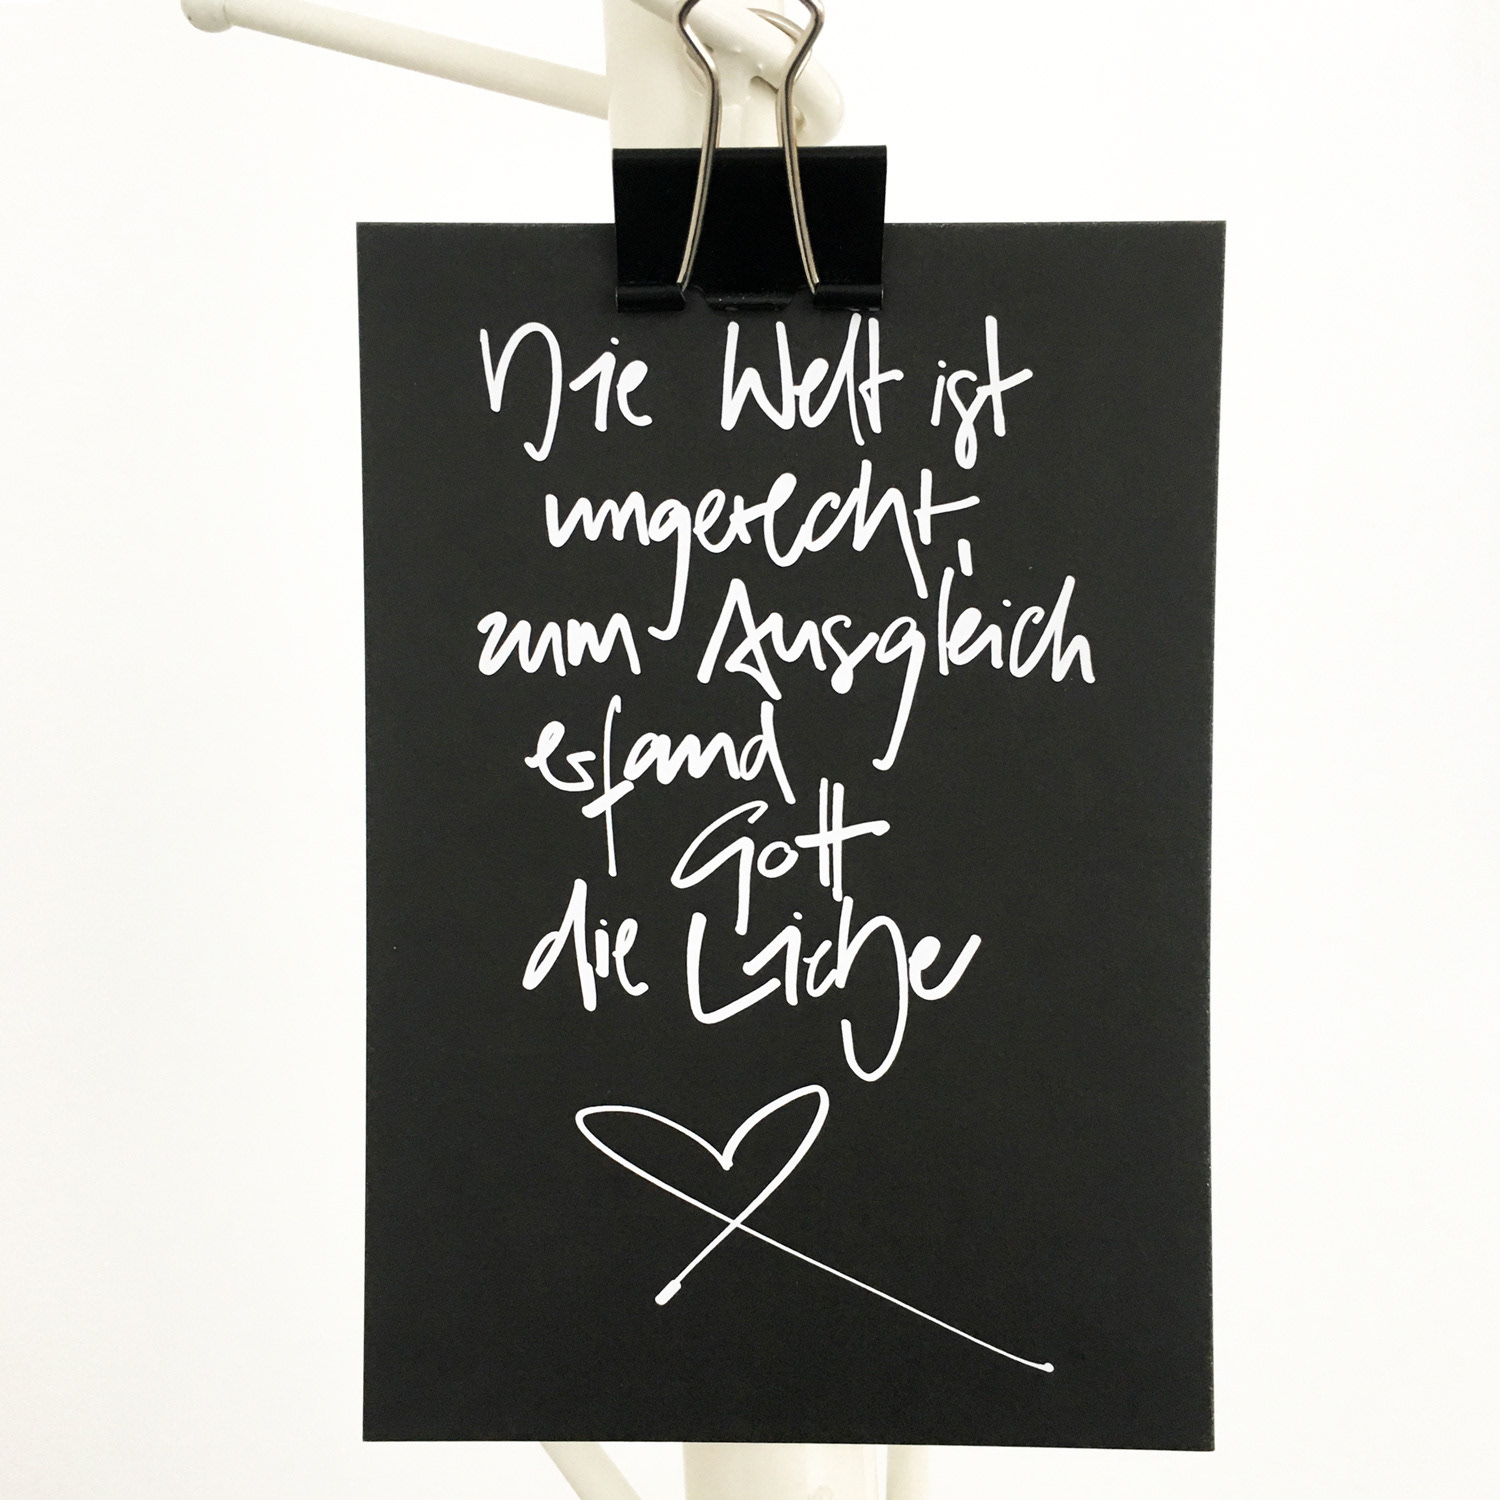 Die Welt ist
ungerecht,
zum Ausgleich
erfand
Gott
die Liebe